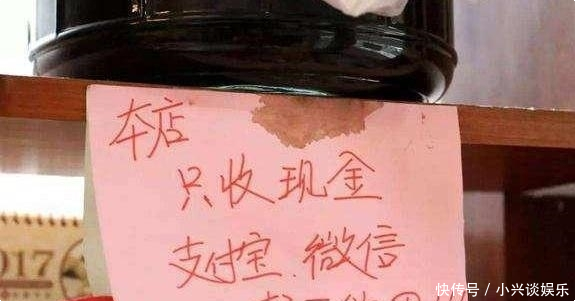 本店
只收现金
支付宝.微信
2017
快传号／小兴谈娱乐